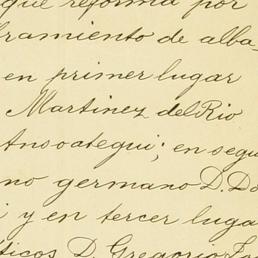 que reforma por
bramiento de alba-
en primer lugar
Martinez del Rio
Ansoategui; en segu
no germano D. Do
i y en tercer luga
ticos D. Gregorio